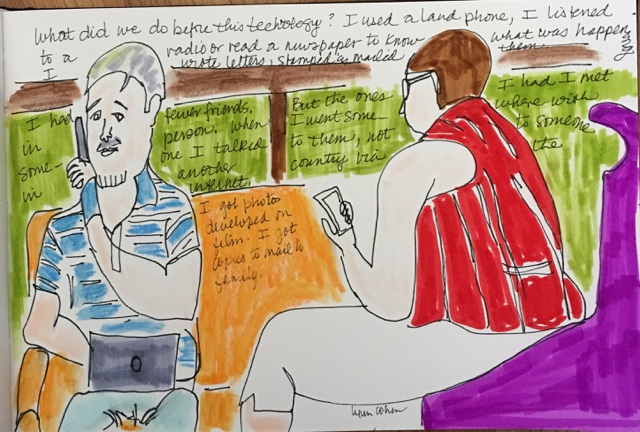 What did we do before this technology? I used a land phone, I listened
to a radio or read a newspaper to know what was happening
I wrote letters, stamped & mailed them.
I had fewer friends, But the ones I had I met
in person. When I went some- where with
some- one I talked to them, not to someone
in another country via the
internet.
I got photos
developed on
film. I got
copies to mail to
family.
Lynn Cohen